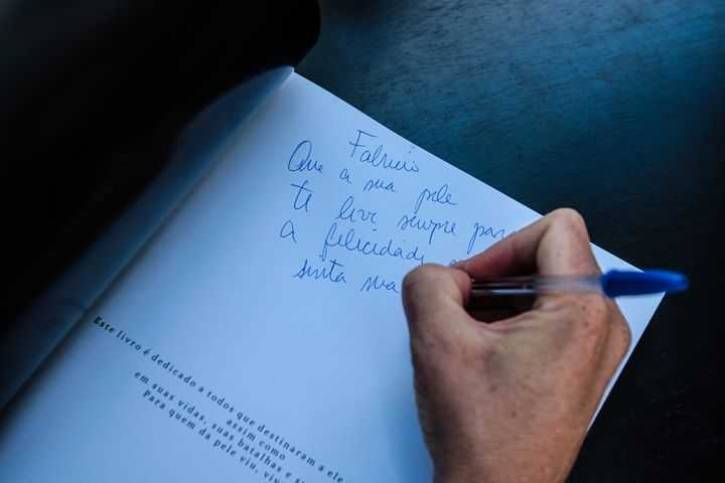 Fabrício
Que a sua pele
te leve sempre para
a felicidade
sinta sua
Este livro é dedicado a todos que destinaram a ele
assim como
em suas vidas, suas batalhas e s
Para quem da pele viu, viv